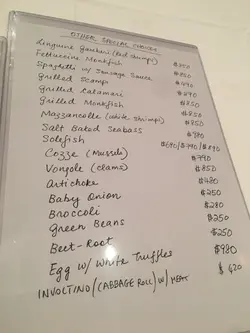 OTHER SPECIAL CHOICES
Linguine Gamberi (Red Shrimps) $850
Fettuccine Monkfish $850
Spaghetti w/ Sausage Sauce $490
Grilled Scampi $890
Grilled Calamari $850
Grilled Monkfish $850
Mazzancolle (white shrimps) $850
Salt Baked Seabass $980
Solefish $690/$790/$890
Cozze (Mussels) $790
Vongole (Clams) $850
Artichoke $480
Baby Onion $250
Broccoli $280
Green Beans $250
Beet-Root $250
Egg w/ White Truffles $980
INVOLTINO/(CABBAGE ROLL) W/ MEAT $620